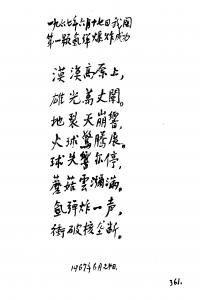 一九六七年六月十七日我国
第一颗氢弹爆炸成功
漠漠高原上，
雄光万丈闊。
地裂天崩響，
火球驚騰展。
球失驚
蘑菇雲瀰滿。
氢弹炸一声，
衝破核垄断。
1967年6月24日.
361.